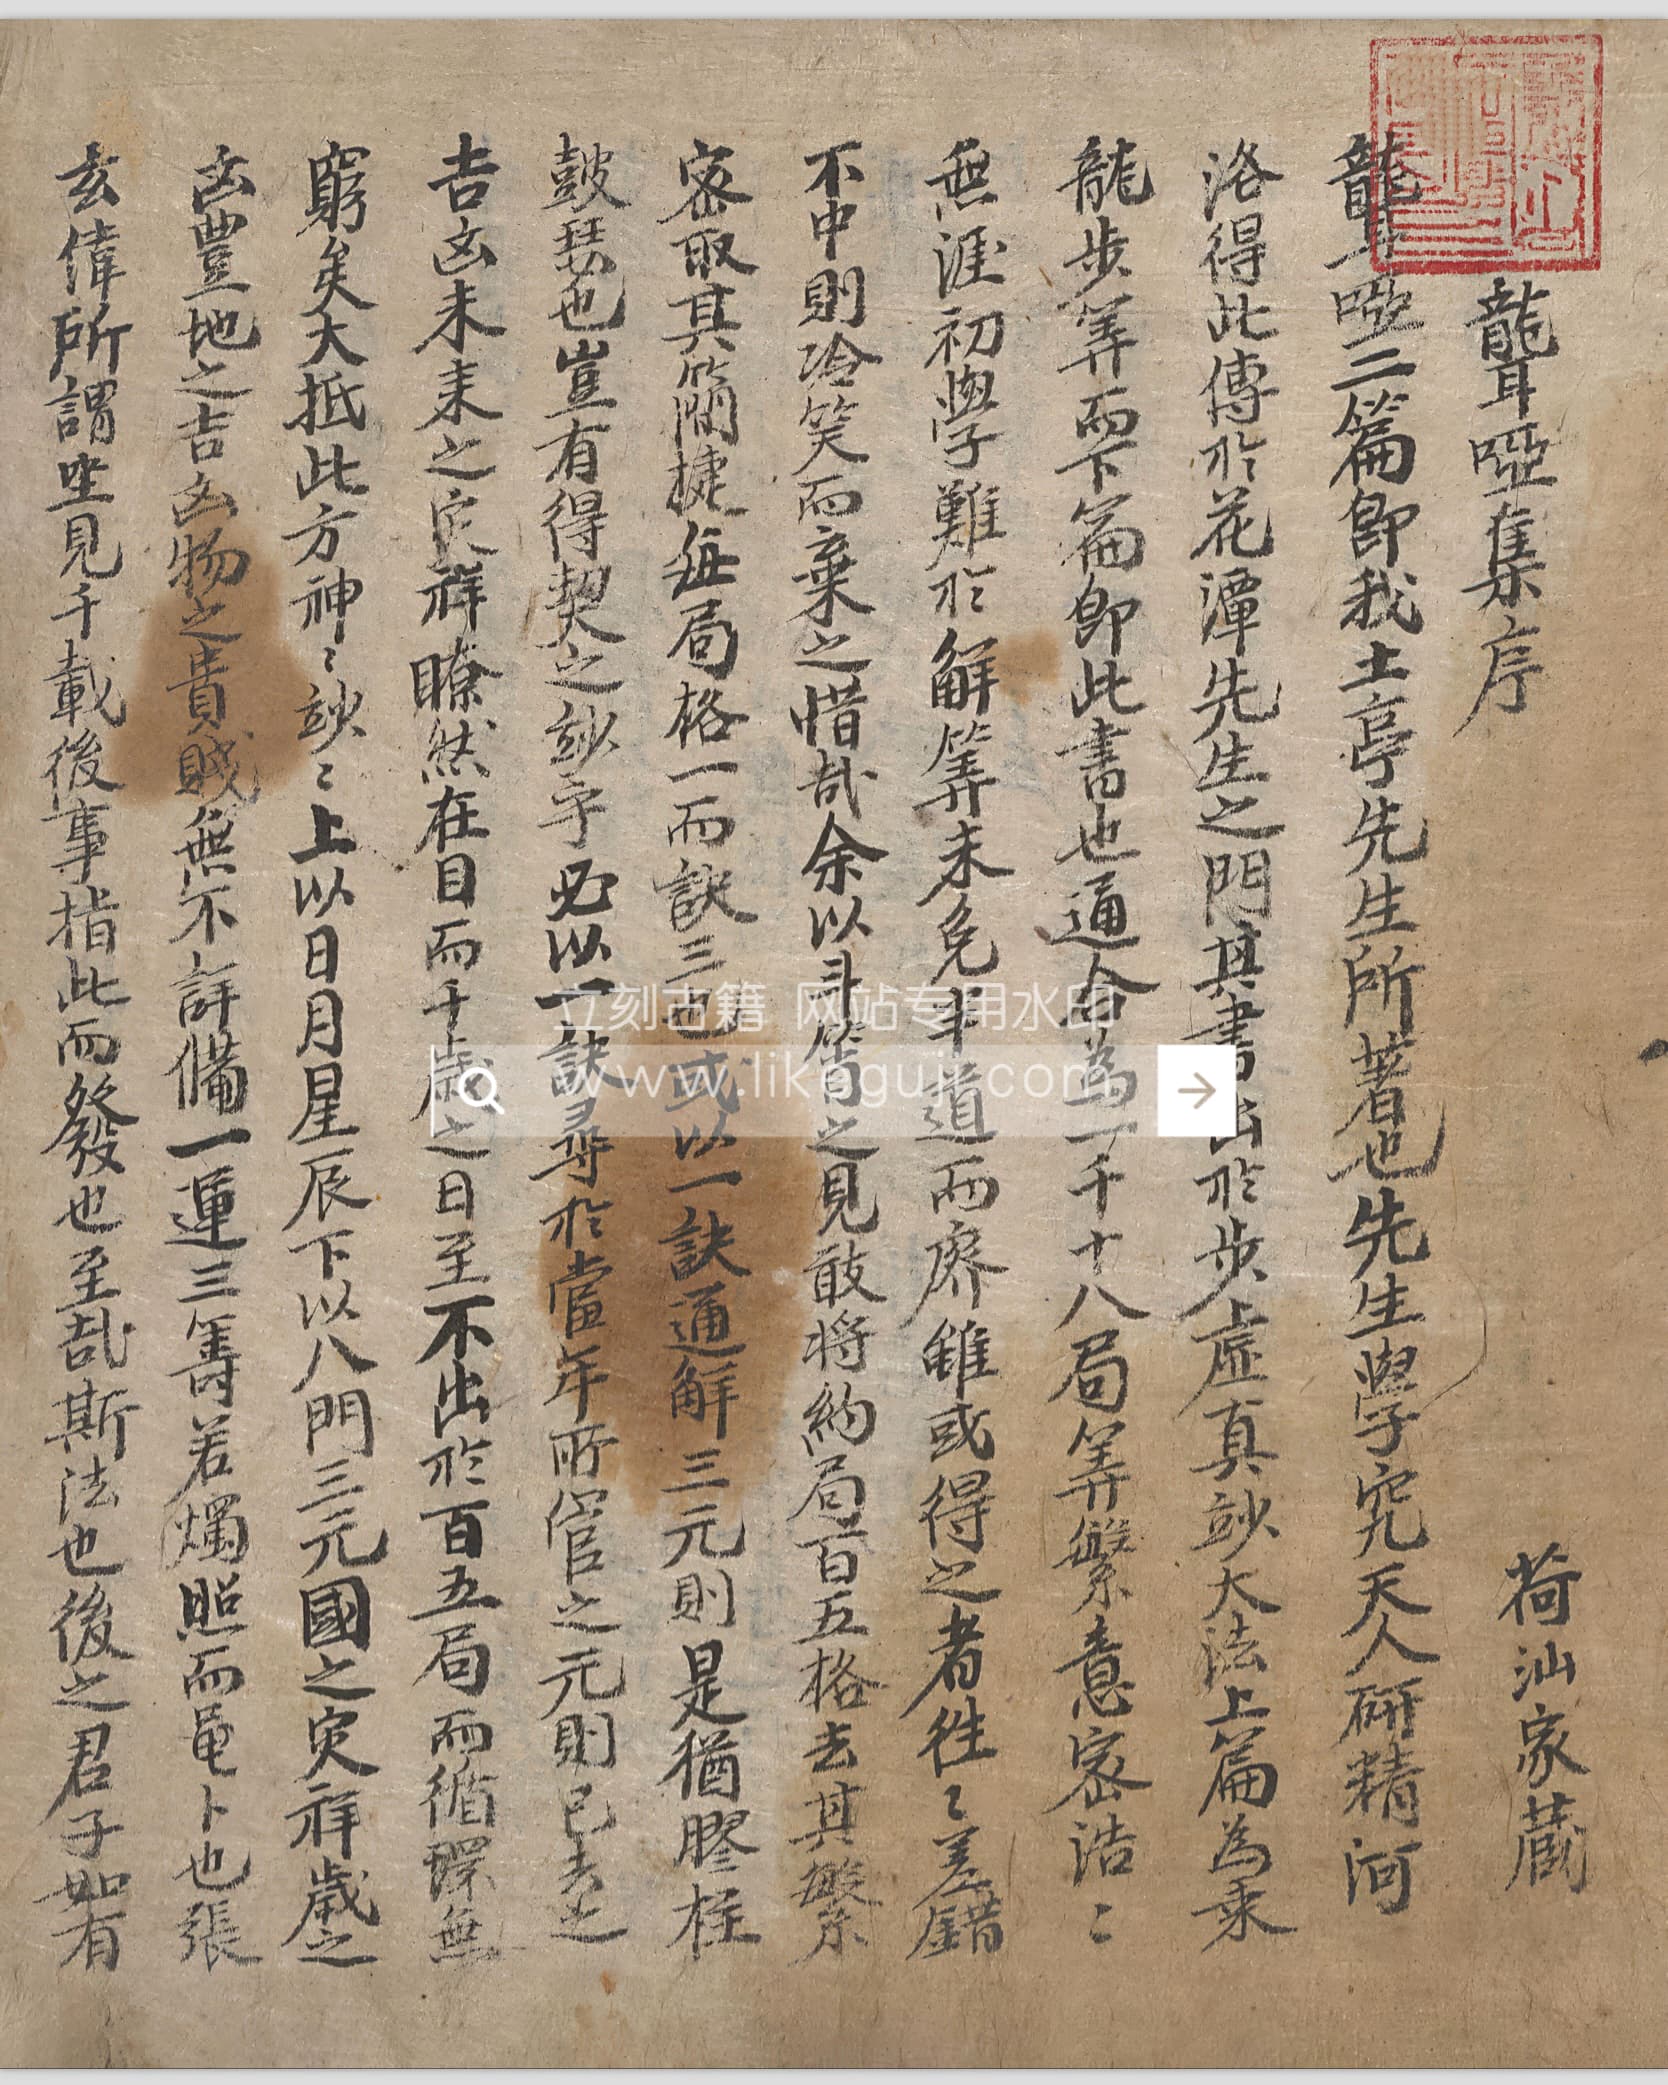 龍耳啞集序
荷汕家藏
聾啞二篇即我土亭先生所著也先生學究天人硏精河
洛得此傳於花潭先生之門其書出於步虛真玅大法上篇為乘
龍步筭而下篇即此書也通合為一千十八局筭繁意密浩〻
無涯初學難於解筭未免半道而廢雖或得之者徃〻差錯
不中則冷笑而棄之惜哉余以斗筲之見敢將約局百五格去其繁
密取其簡捷每局格一而訣三也或以一訣通解三元則是猶膠柱
皷瑟也豈有得契之玅乎必以一訣尋於當年所管之元則已去之
吉凶未来之灾祥瞭然在目而千歲之日至不出於百五局而循環無
窮矣大抵此方神〻玅〻上以日月星辰下以八門三元國之灾祥歲之
凶豊地之吉凶物之貴賤無不詳備一運三籌若燭照而黾卜也張
玄偉所謂坐見千載後事指此而發也至哉斯法也後之君子如有
立刻古籍 网站专用水印
www.likeguji.com